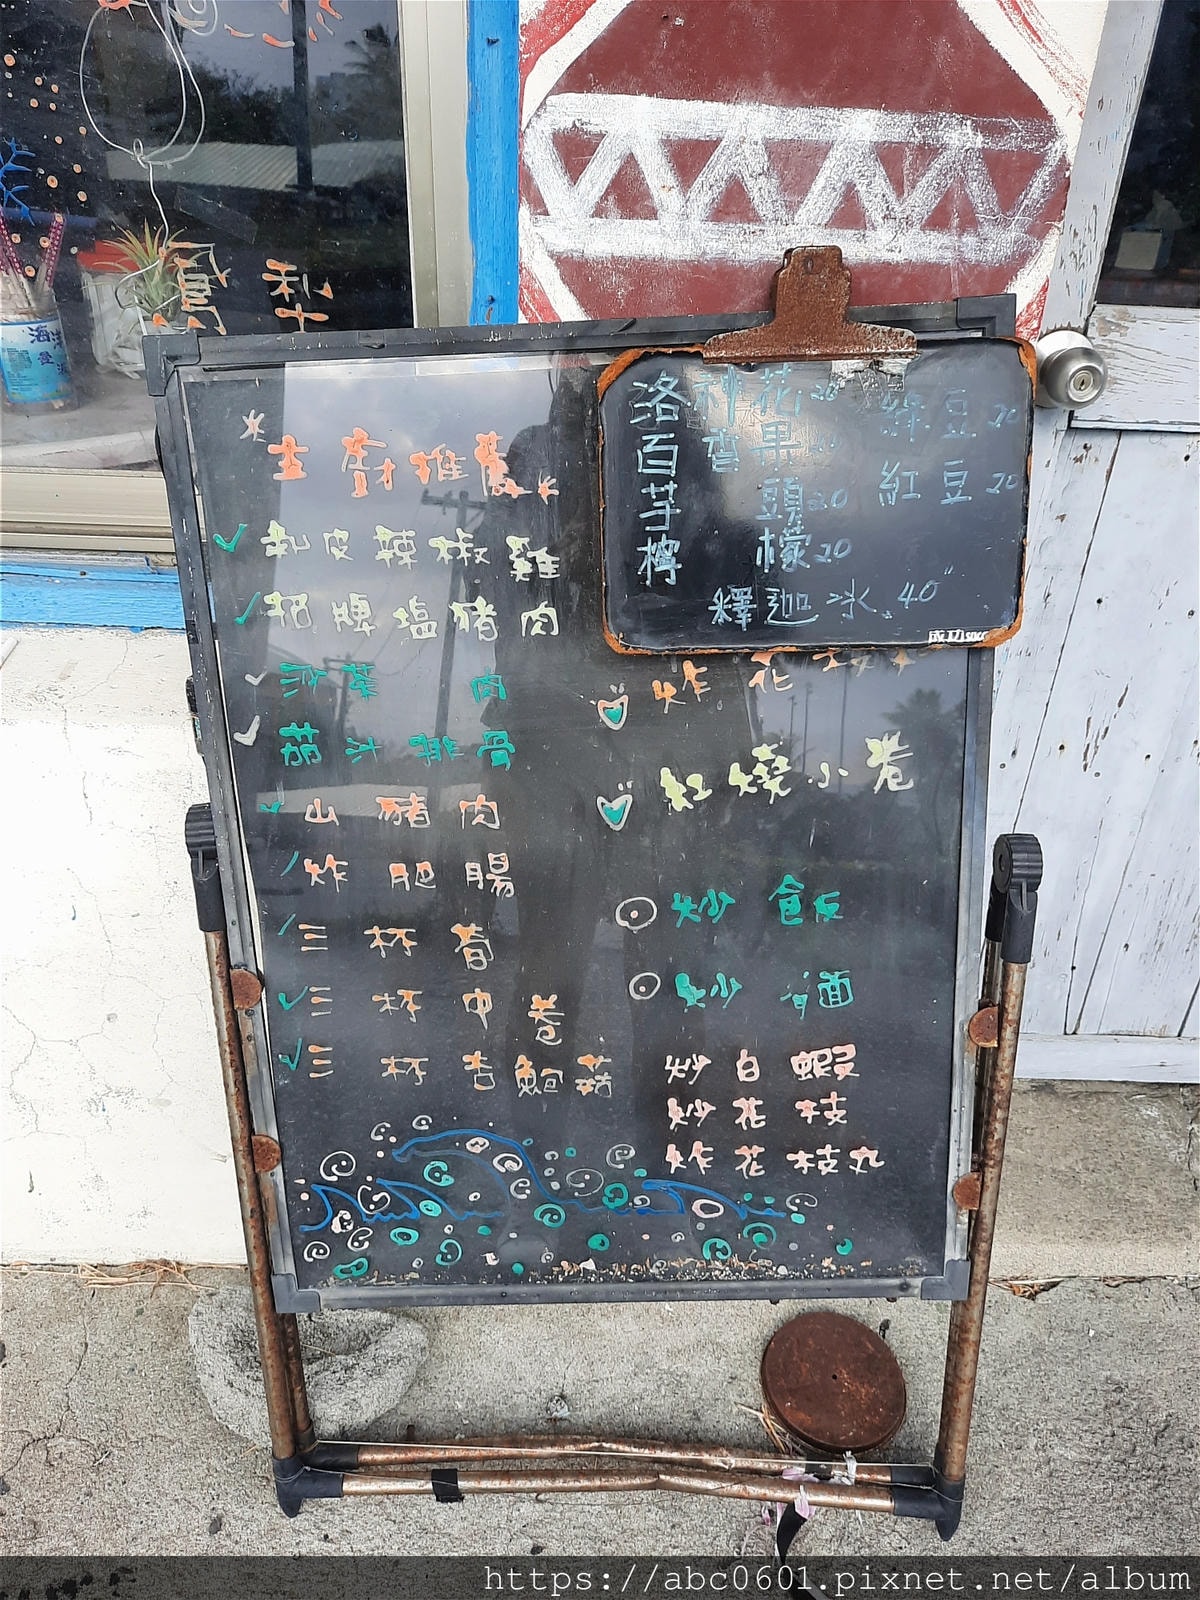 主廚推薦
乾皮辣椒雞
招牌塩豬肉
沙茶 肉
菇汁排骨
山豬肉
炸肥腸
三杯
三杯中卷
三杯杏鮑菇
洛神花20 綠豆20
百香果
芋頭20 紅豆20
檸檬20
釋迦冰.40
炸花枝
紅燒小卷
炒飯
炒麵
炒白蝦
炒花枝
炸花枝丸
https://abc0601.pixnet.net/album